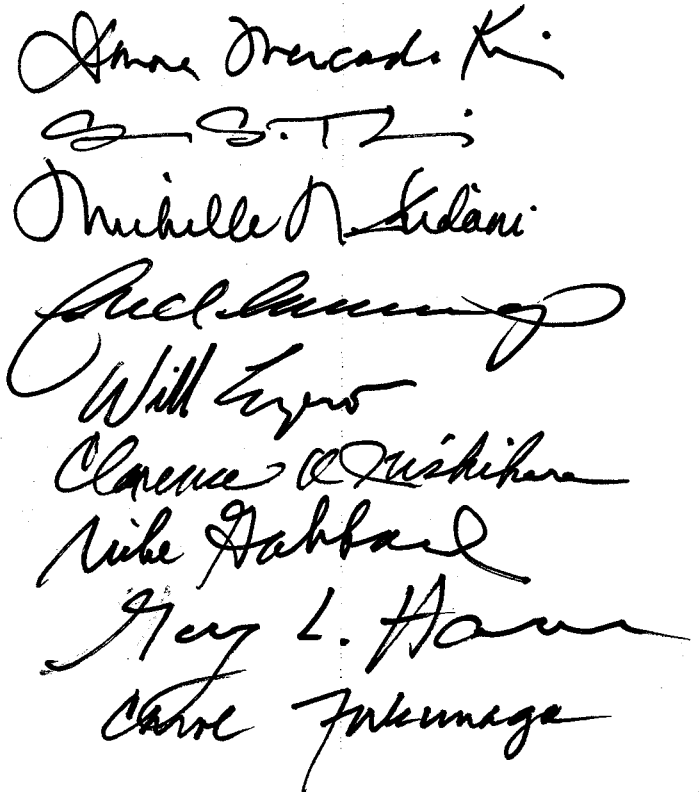 Donna Mercado Kim
S. T
Michelle N. Kidani

Will Espero
Clarence K Nishihara
Mike Gabbard
Gary L. Hooser
Carol Fukunaga